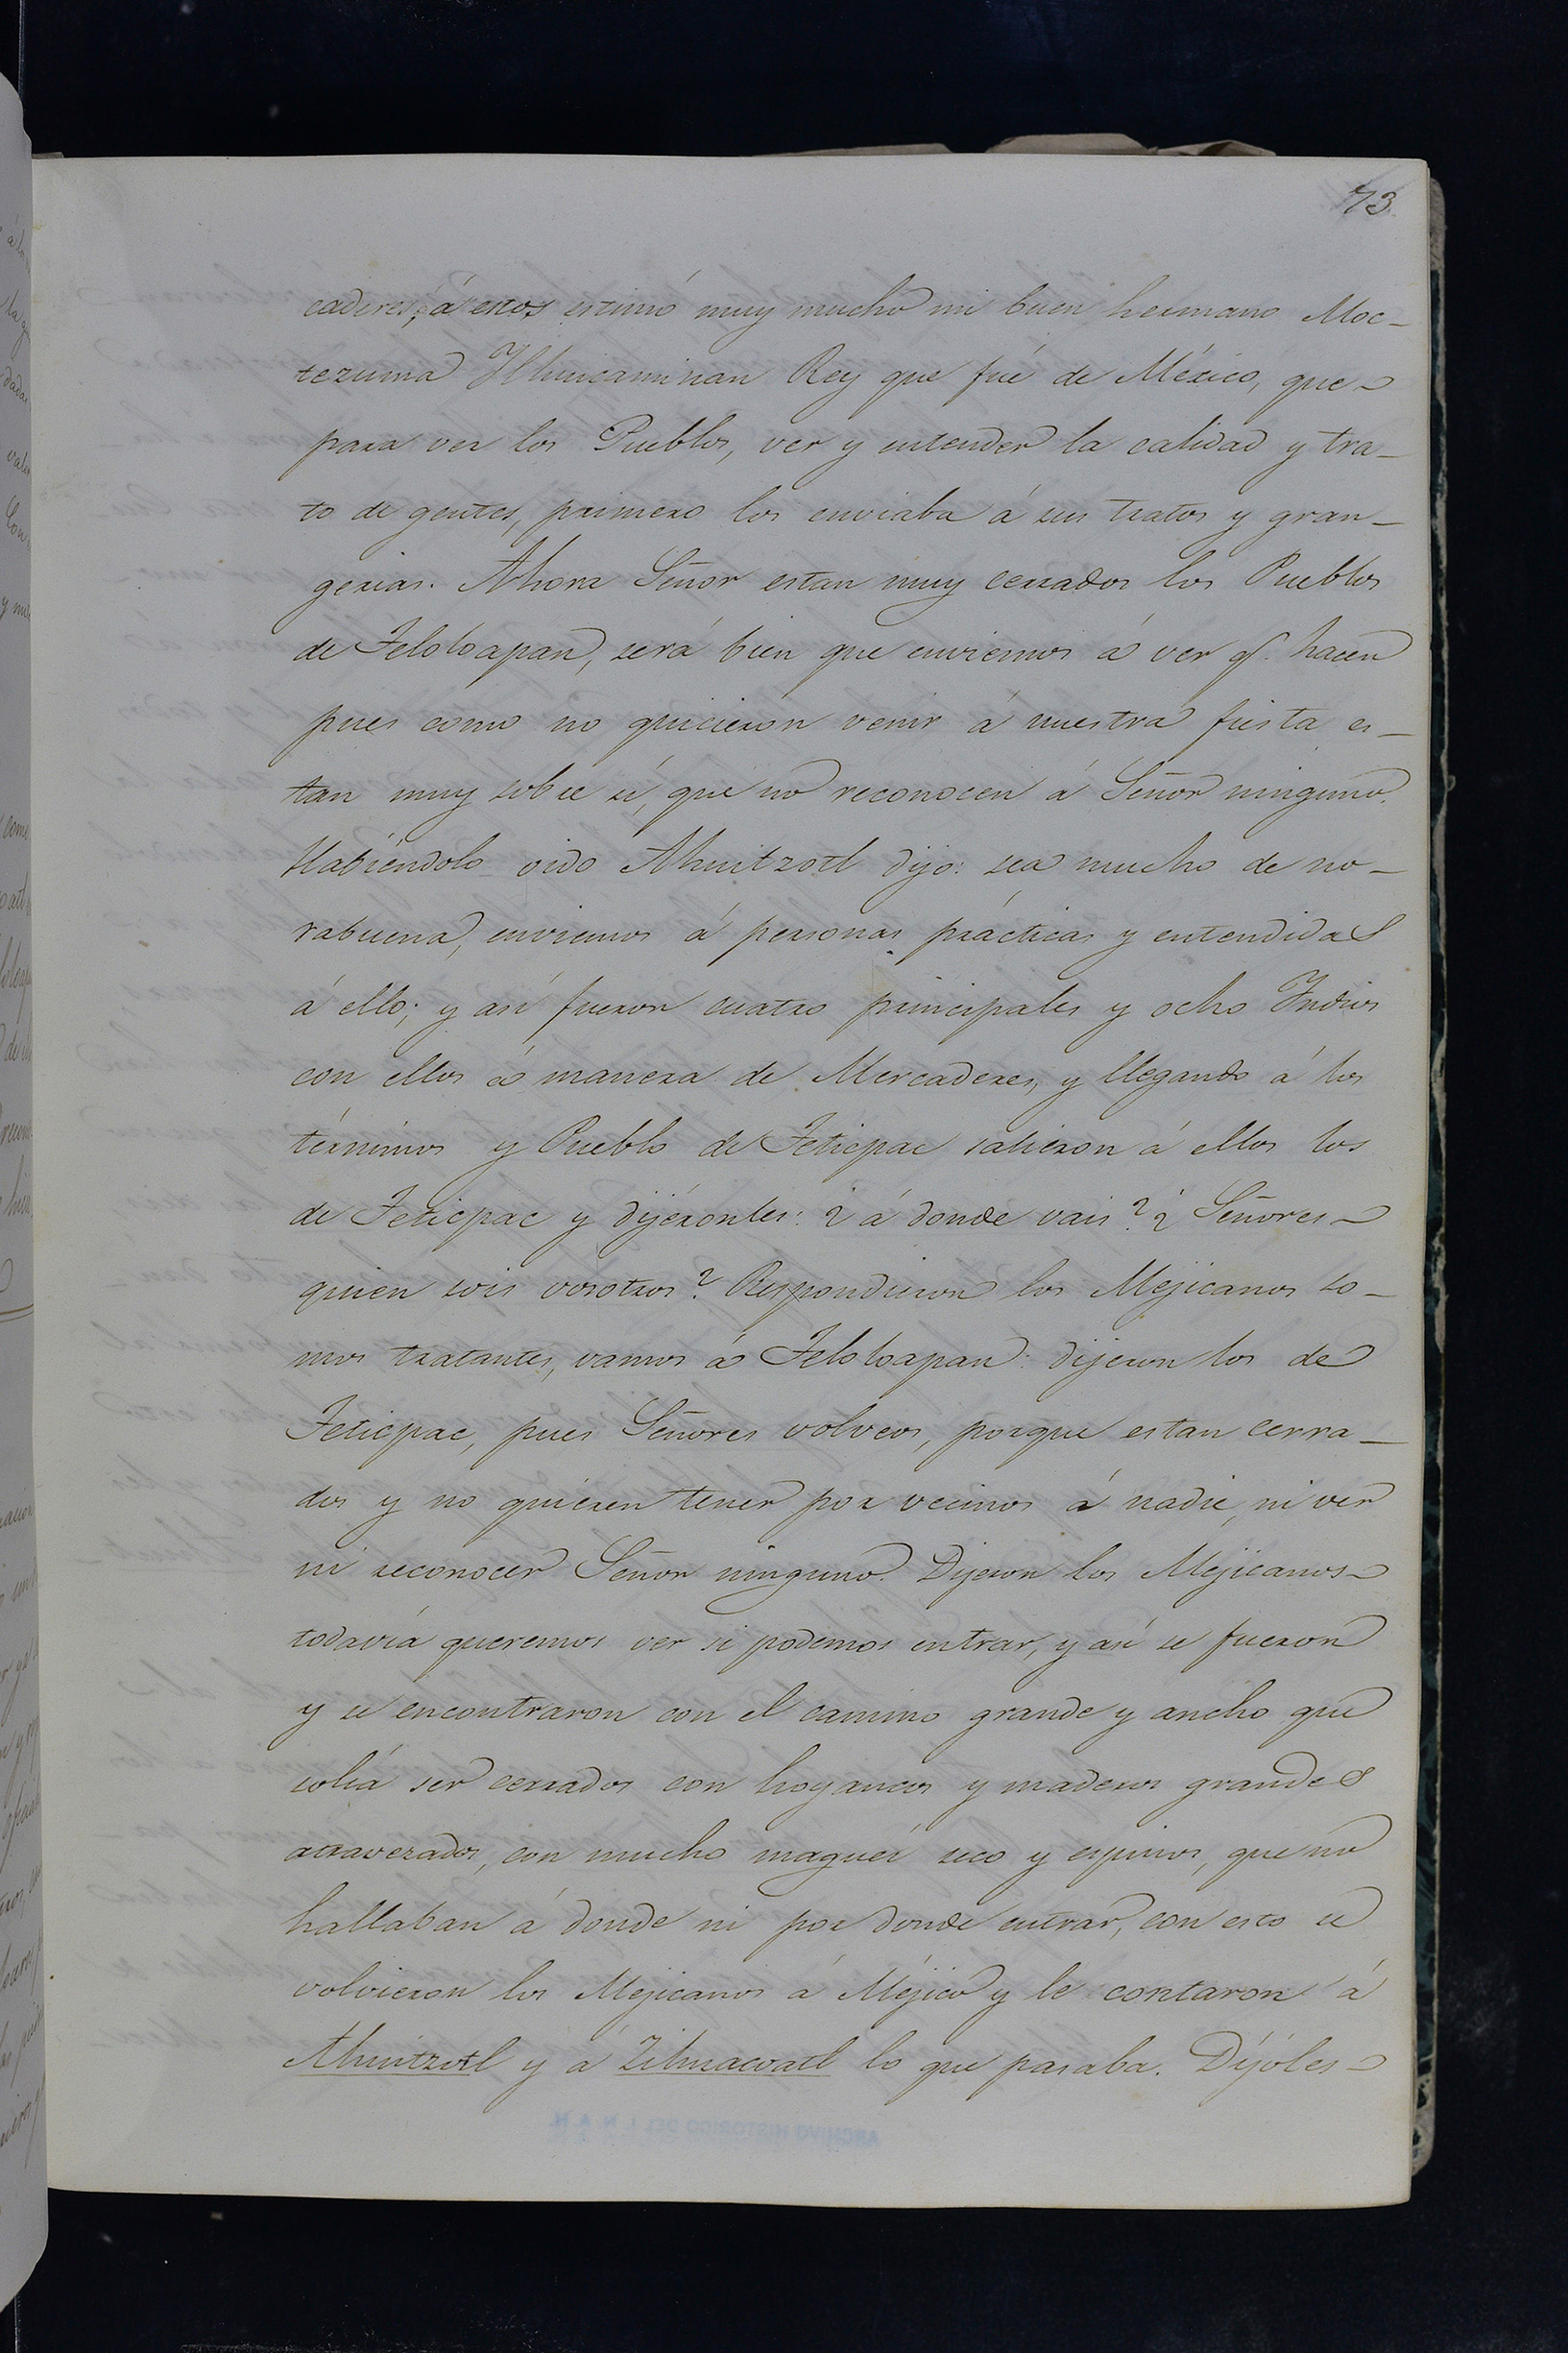 73.
caderes; á estos estimó muy mucho mi buen hermano Moc-
tezuma Ilhuicaminan Rey que fué de México, que
para ver los Pueblos, ver y entender la calidad y tra-
to de gentes, primero los enviaba á sus tratos y gran-
gerias. Ahora Señor estan muy cerrados los Pueblos
de Teloloapan, será bien que enviemos á ver q.e hacen
pues como no quicieron venir á nuestra fiesta es-
tan muy sobre sí, que no reconocen á Señor ninguno.
Habiéndolo oido Ahuitzotl dijo: sea mucho de no-
rabuena, enviemos á personas prácticas y entendidas
á ello; y asi fueron cuatro principales y ocho Indios
con ellos á manera de Mercaderes, y llegando á los
términos y Pueblo de Teticpac salieron á ellos los
de Teticpac y dijéronles: ¿á donde vais? ¿Señores
quien sois vosotros? Respondieron los Mejicanos so-
mos tratantes, vamos á Teloloapan: dijeron los de
Teticpac, pues Señores volveos, porque estan cerra-
dos y no quieren tener por vecinos á nadie, ni ver
ni reconocer Señor ninguno. Dijeron los Mejicanos
todavía queremos ver si podemos entrar, y asi se fueron
y se encontraron con el camino grande y ancho que
solía ser cerrados con hoyancos y maderos grandes
atravezados, con mucho maguéi seco y espinos, que no
hallaban á donde ni por donde entrar, con esto se
volvieron los Mejicanos á Méjico y le contaron á
Ahuitzotl y á Zihuacoatl lo que pasaba. Díjoles